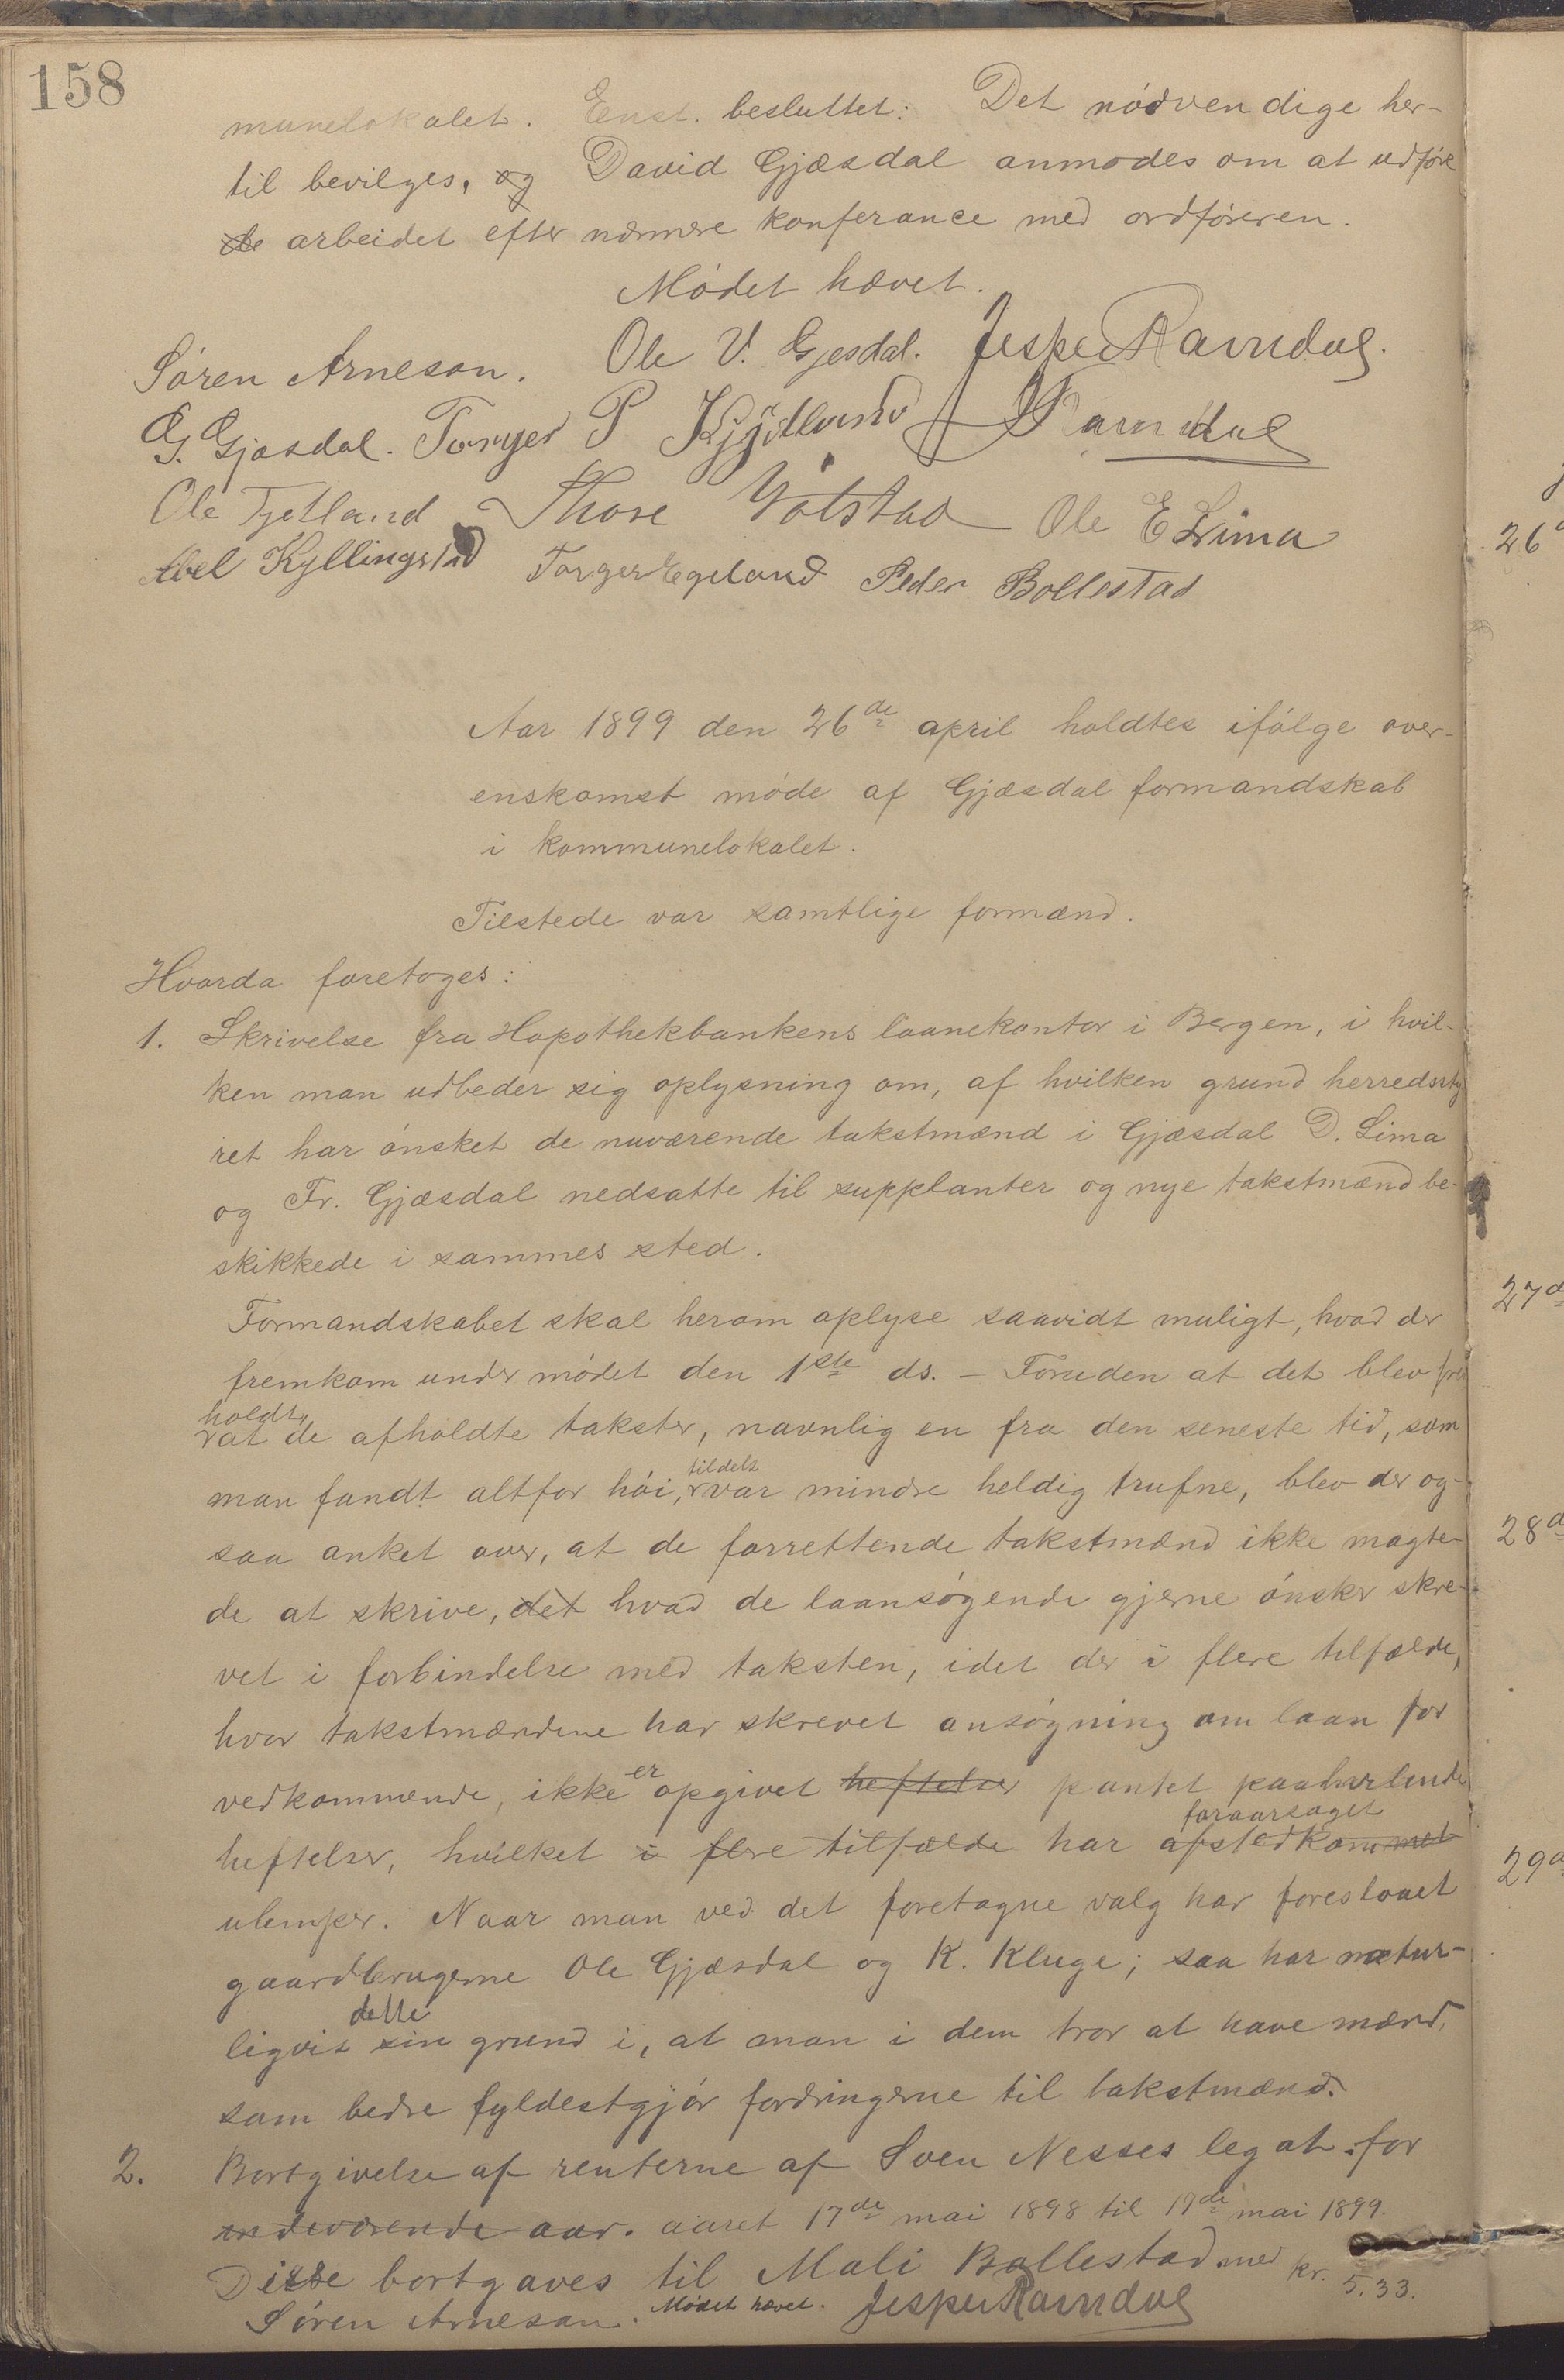 158
munelokalet. Enst. besluttet: Det nódvendige her-
til bevilges, og David Gjæsdal anmodes om at udføre
de arbeidet efter nærmere konferance med ordføreren.
Módet hævet.
Sóren Arneson. Ole V. Gjesdal. Jesper Ravndal.
G. Gjæsdal. Torger P Kjÿdland Ravndal
Ole Tjetland Thore Ÿolstad Ole E Lima
Abel Kÿllingstad Torger Egeland Peder Bollestad
Aar 1899 den 26de april holdtes ifólge over-
enskomst móde af Gjæsdal formandskab
i kommunelokalet.
Tilstede var samtlige formænd.
Hvorda foretoges:
1. Skrivelse fra Hypothekbankens laanekontor i Bergen, i hvil-
ken man udbeder sig oplysning om, af hvilken grund herredsty
ret har ónsket de nuværende takstmænd i Gjæsdal D. Lima
og Fr. Gjæsdal nedsatte til supplanter og nye takstmænd be-
skikkede i sammes sted.
Formandskabet skal herom oplyse saavidt muligt, hvad der
fremkom under módet den 1ste ds. – Foruden at det blev frem
holdt,
at de afholdte takster, navnlig en fra den seneste tid, som
tildels
man fandt altfor hói, var mindre heldig trufne, blev der og-
saa anket over, at de forrettende takstmænd ikke magte-
de at skrive, det hvad de laansógende gjerne ónsker skre-
vet i forbindelse med taksten, idet der i flere tilfælde,
hvor takstmændene har skrevet ansógning om laan for
er
vedkommende, ikke opgivet heftelser pantet paahvilende
foraarsaget
heftelser, hvilket i flere tilfælde har afstedkommet
ulemper. Naar man ved det foretagne valg har foreslaaet
gaardbrugerne Ole Gjæsdal og K. Kluge; saa har natur-
dette
ligvis sin grund i, at man i dem tror at have mænd,
som bedre fyldestgjór fordringerne til takstmænd.
2. Bortgivelse af renterne af Sven Nesses legat for
indeværende aar. aaret 17de mai 1898 til 17de mai 1899.
Disse bortgaves til Mali Bollestad med kr. 5.33.
Sóren Arneson. Módet hævet. Jesper Ravndal
26d
27d
28d
29d